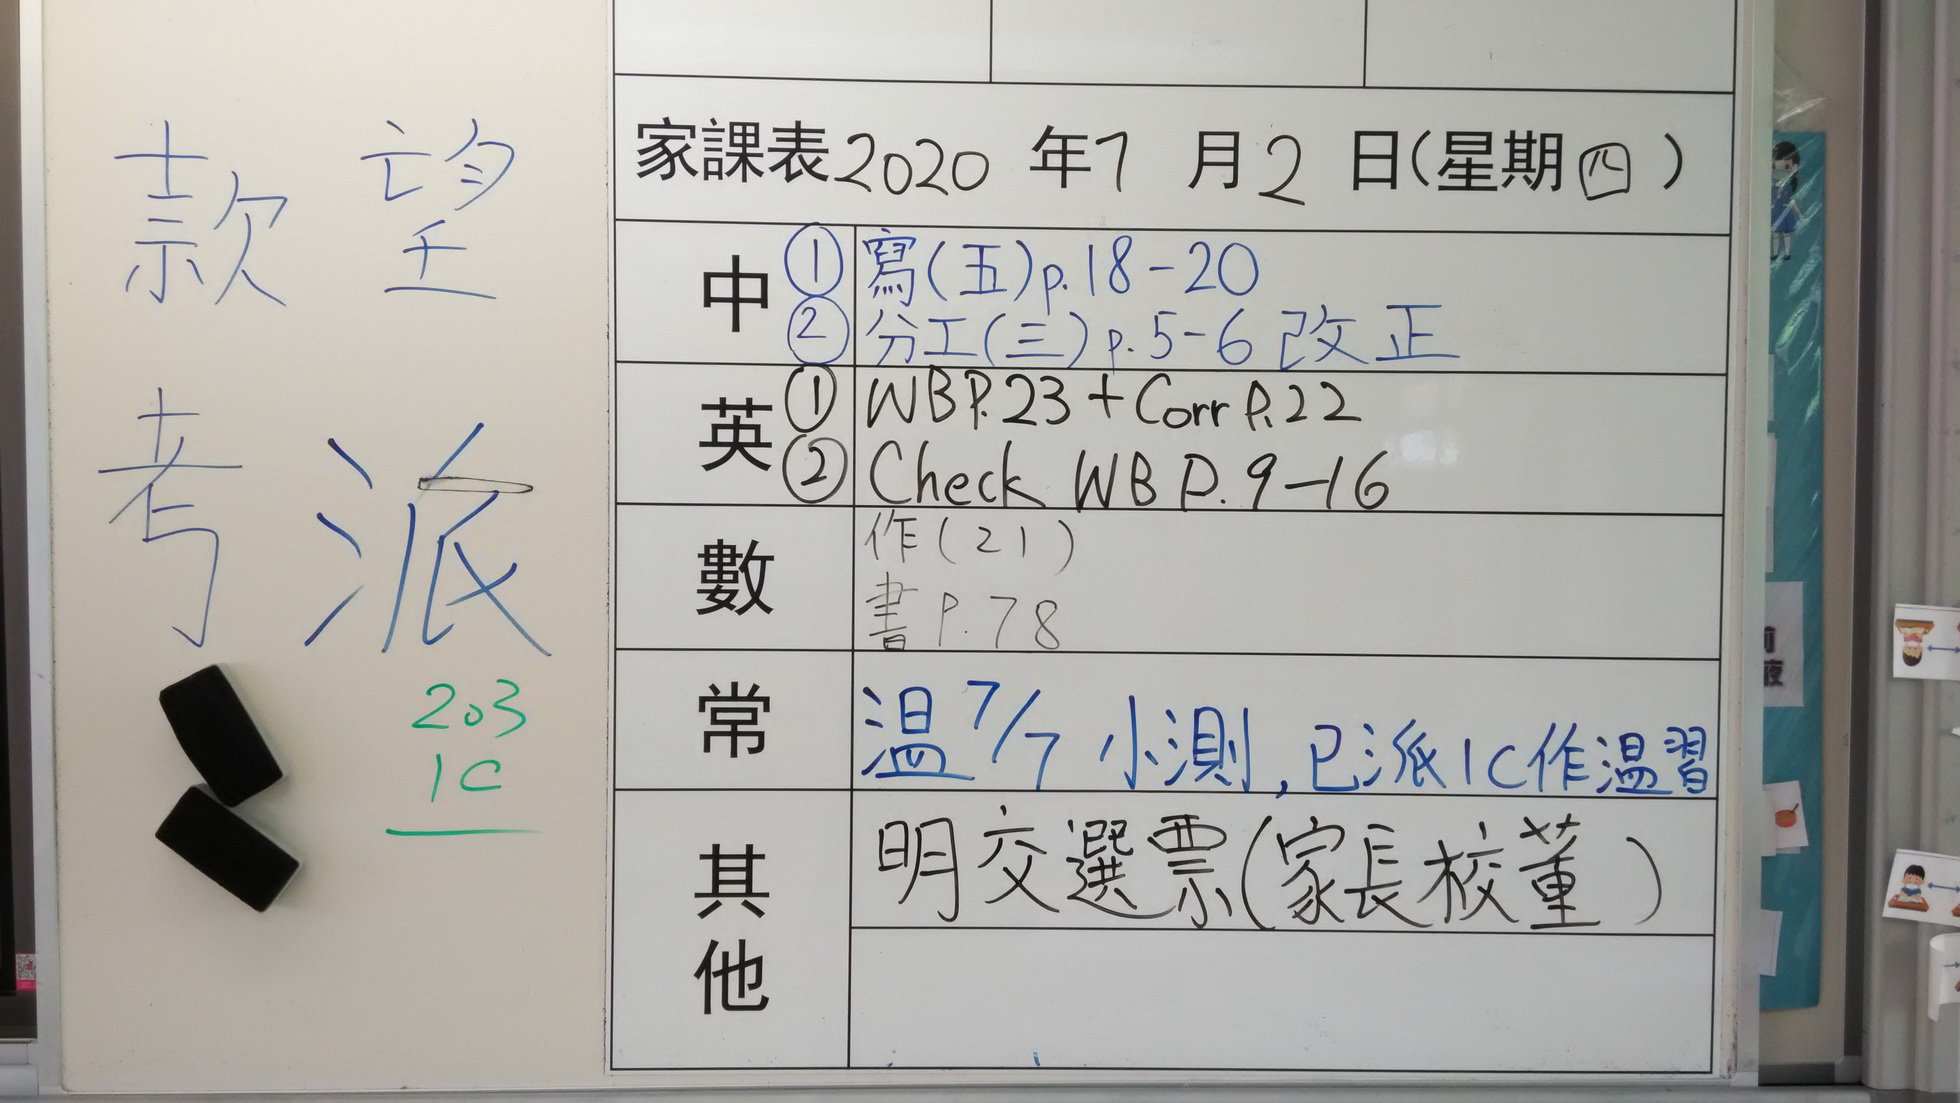 款 望
考 派
203
1C
家課表2020 年7 月2 日(星期四)
中 ① 寫(五)p.18-20
② 分工(三)p.5-6 改正
英 ① WB P.23 + Corr P.22
② Check WB P.9-16
數 作(21)
書 P.78
常 温 7/7 小測,已派1C作温習
其他 明交選票(家長校董)